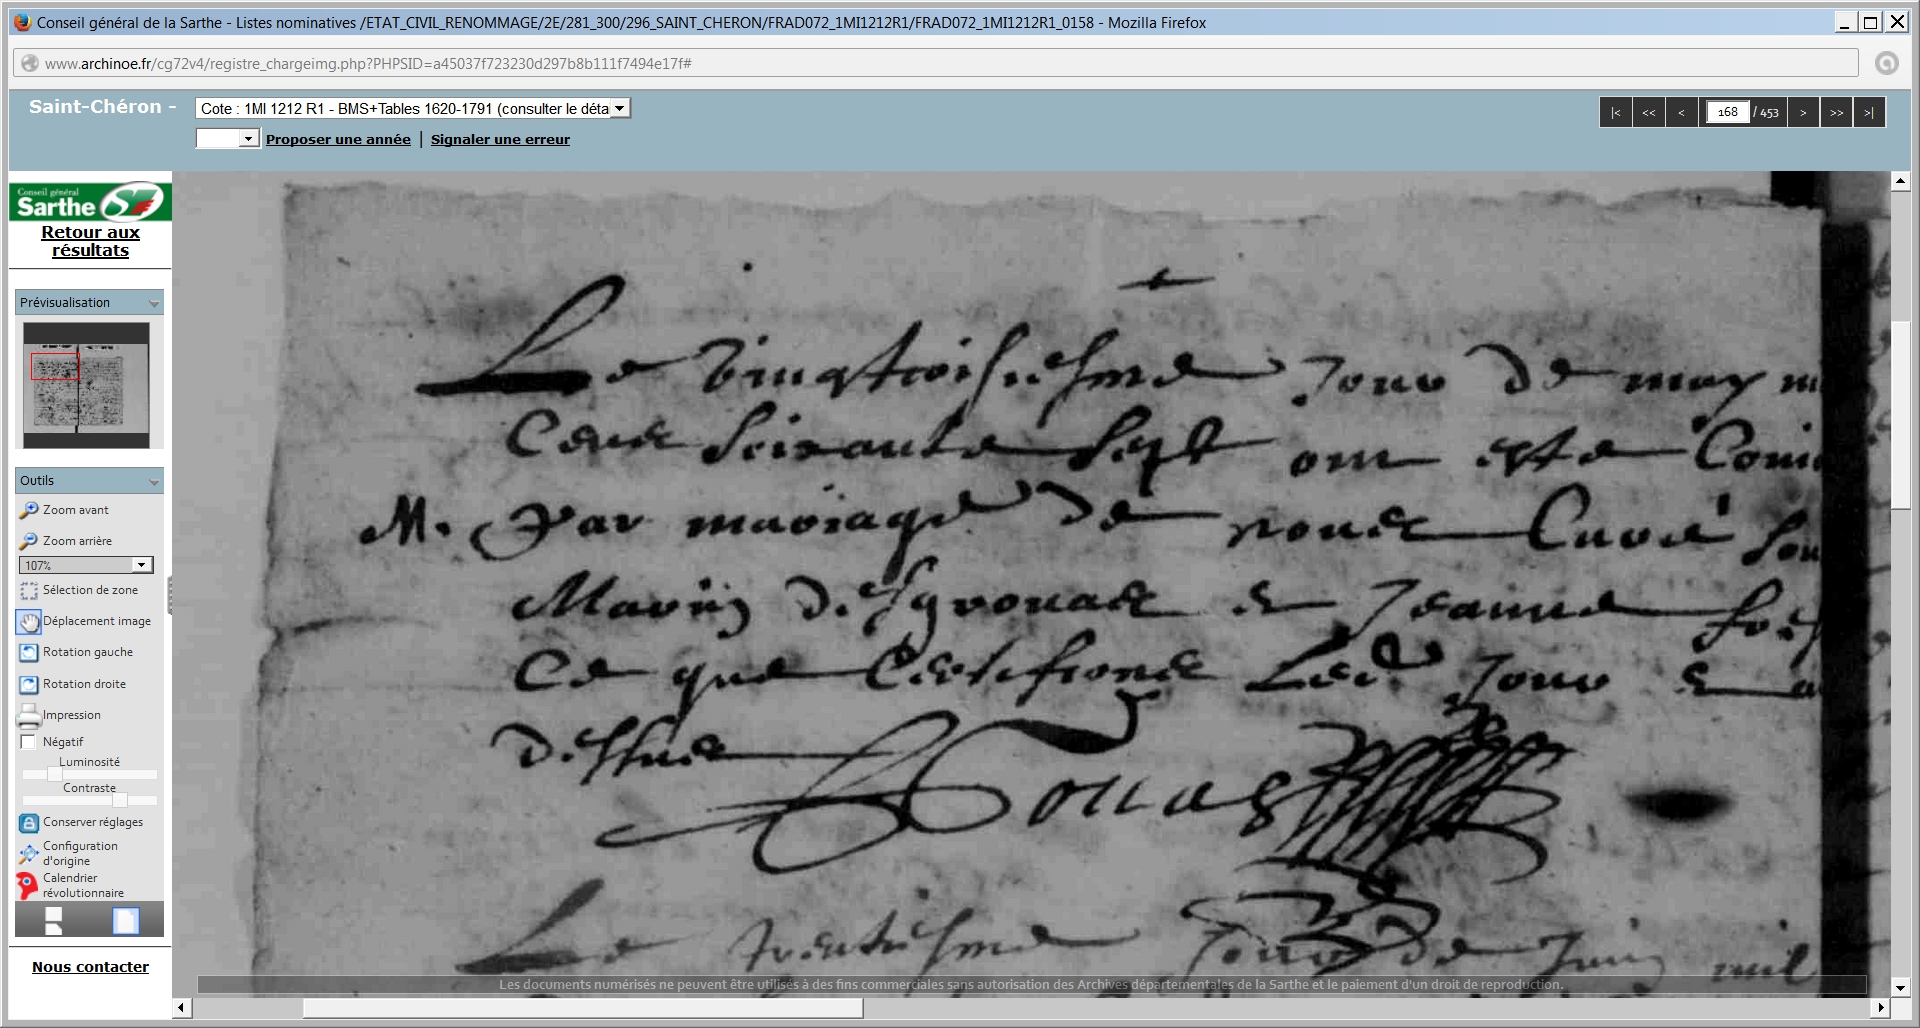 Conseil général de la Sarthe - Listes nominatives /ETAT_CIVIL_RENOMMAGE/2E/281_300/296_SAINT_CHERON/FRAD072_1MI1212R1/FRAD072_1MI1212R1_0158 - Mozilla Firefox
www.archinoe.fr/cg72v4/registre_chargeimg.php?PHPSID=a45037f723230d297b8b111f7494e17f#
Saint-Chéron -
Cote : 1MI 1212 R1 - BMS+Tables 1620-1791 (consulter le déta
Proposer une année | Signaler une erreur
|< << < 168 / 453 > >> >|
Conseil général
Sarthe
Retour aux
résultats
Prévisualisation
Outils
Zoom avant
Zoom arrière
107%
Sélection de zone
Déplacement image
Rotation gauche
Rotation droite
Impression
Négatif
Luminosité
Contraste
Conserver réglages
Configuration
d'origine
Calendrier
révolutionnaire
Nous contacter
Le vingtroisiesme Jour de may
Cens soixante sept ont esté
M. Par mariage de nous Curé
Marin et Jeanne
Ce que Certifions Led Jour
dessus
Le trentiesme Jour de Juin mil
Les documents numérisés ne peuvent être utilisés à des fins commerciales sans autorisation des Archives départementales de la Sarthe et le paiement d'un droit de reproduction.